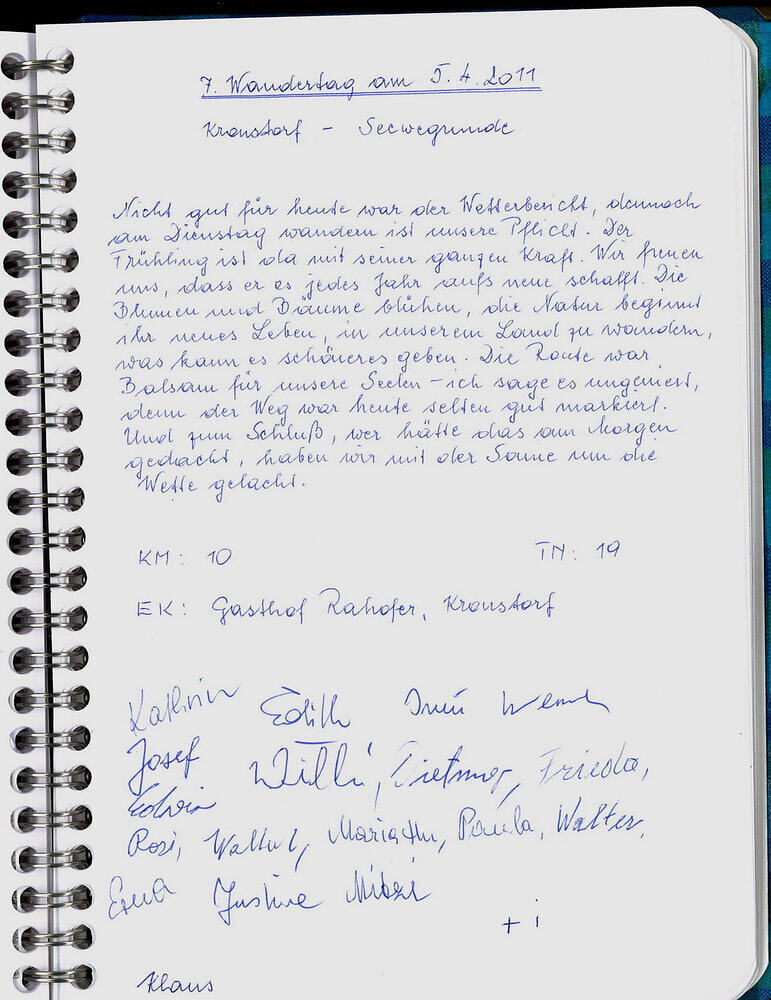 7. Wandertag am 5.4.2011
Kronstorf - Seewegrunde
Nicht gut für heute war der Wetterbericht, dennoch
am Dienstag wandern ist unsere Pflicht. Der
Frühling ist da mit seiner ganzen Kraft. Wir freuen
uns, dass er es jedes Jahr aufs neue schafft. Die
Blumen und Bäume blühen, die Natur beginnt
ihr neues Leben, in unserem Land zu wandern,
was kann es schöneres geben. Die Route war
Balsam für unsere Seelen - ich sage es ungeniert,
denn der Weg war heute selten gut markiert.
Und zum Schluß, wer hätte das am Morgen
gedacht, haben wir mit der Sonne um die
Wette gelacht.
KM: 10 TN: 19
EK: Gasthof Rahofer, Kronstorf
Kathrin Edith
Josef Willi, Dietmar, Frieda,
Edwin
Rosi, Waltud, Mariathr, Paula, Walter,
Erna Justine Mitzi
+ i
Klaus